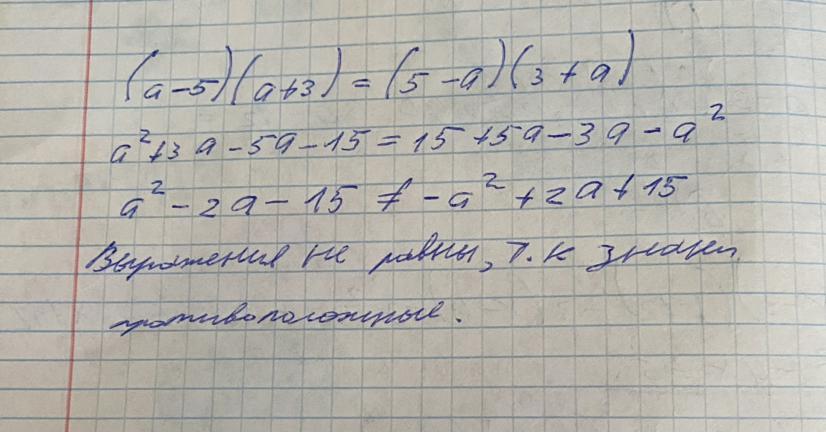 (a-5)(a+3) = (5-a)(3+a)
a²+3a-5a-15 = 15+5a-3a-a²
a²-2a-15 ≠ -a²+2a+15
Выражения не равны, т.к знаки
противоположные.